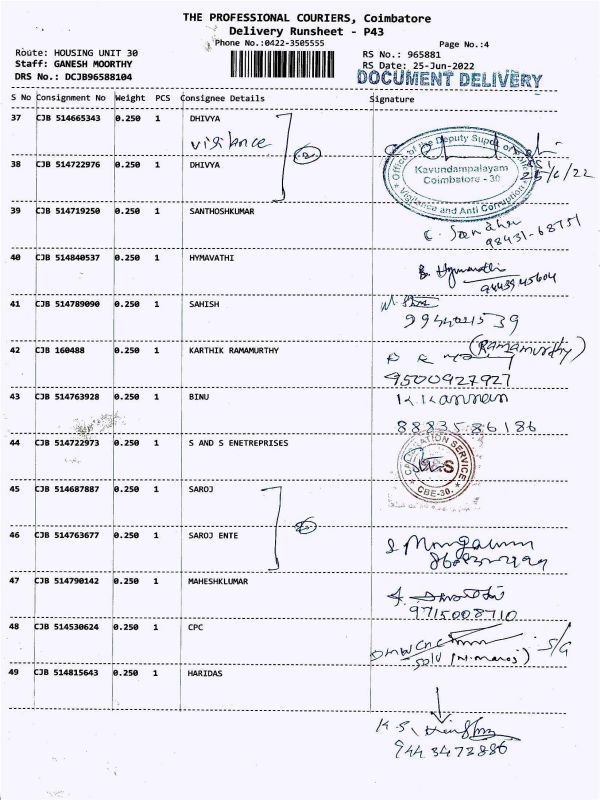 THE PROFESSIONAL COURIERS, Coimbatore
Delivery Runsheet - P43
Phone No.:0422-3505555
Page No.:4
Route: HOUSING UNIT 30
RS No.: 965881
Staff: GANESH MOORTHY
RS Date: 25-Jun-2022
DRS No.: DCJB96588104
DOCUMENT DELIVERY
S No Consignment No Weight PCS Consignee Details Signature
37 CJB 514665343 0.250 1 DHIVYA
vigilance
②
Office of the Deputy Supdt of Police
Kavundampalayam
Coimbatore - 30
* Vigilance and Anti Corruption *
38 CJB 514722976 0.250 1 DHIVYA
39 CJB 514719250 0.250 1 SANTHOSHKUMAR
98431-68751
40 CJB 514840537 0.250 1 HYMAVATHI
B. Hymavathi
9443945604
41 CJB 514789090 0.250 1 SAHISH
42 CJB 160488 0.250 1 KARTHIK RAMAMURTHY
(RAMAMURTHY)
9500927927
43 CJB 514763928 0.250 1 BINU
K.Kannan
8883586186
44 CJB 514722973 0.250 1 S AND S ENETREPRISES
CBE-30.
45 CJB 514687887 0.250 1 SAROJ
②
46 CJB 514763677 0.250 1 SAROJ ENTE
47 CJB 514790142 0.250 1 MAHESHKLUMAR
9715008710
48 CJB 514530624 0.250 1 CPC
(N.Manoj) S/G
49 CJB 514815643 0.250 1 HARIDAS
9443472886